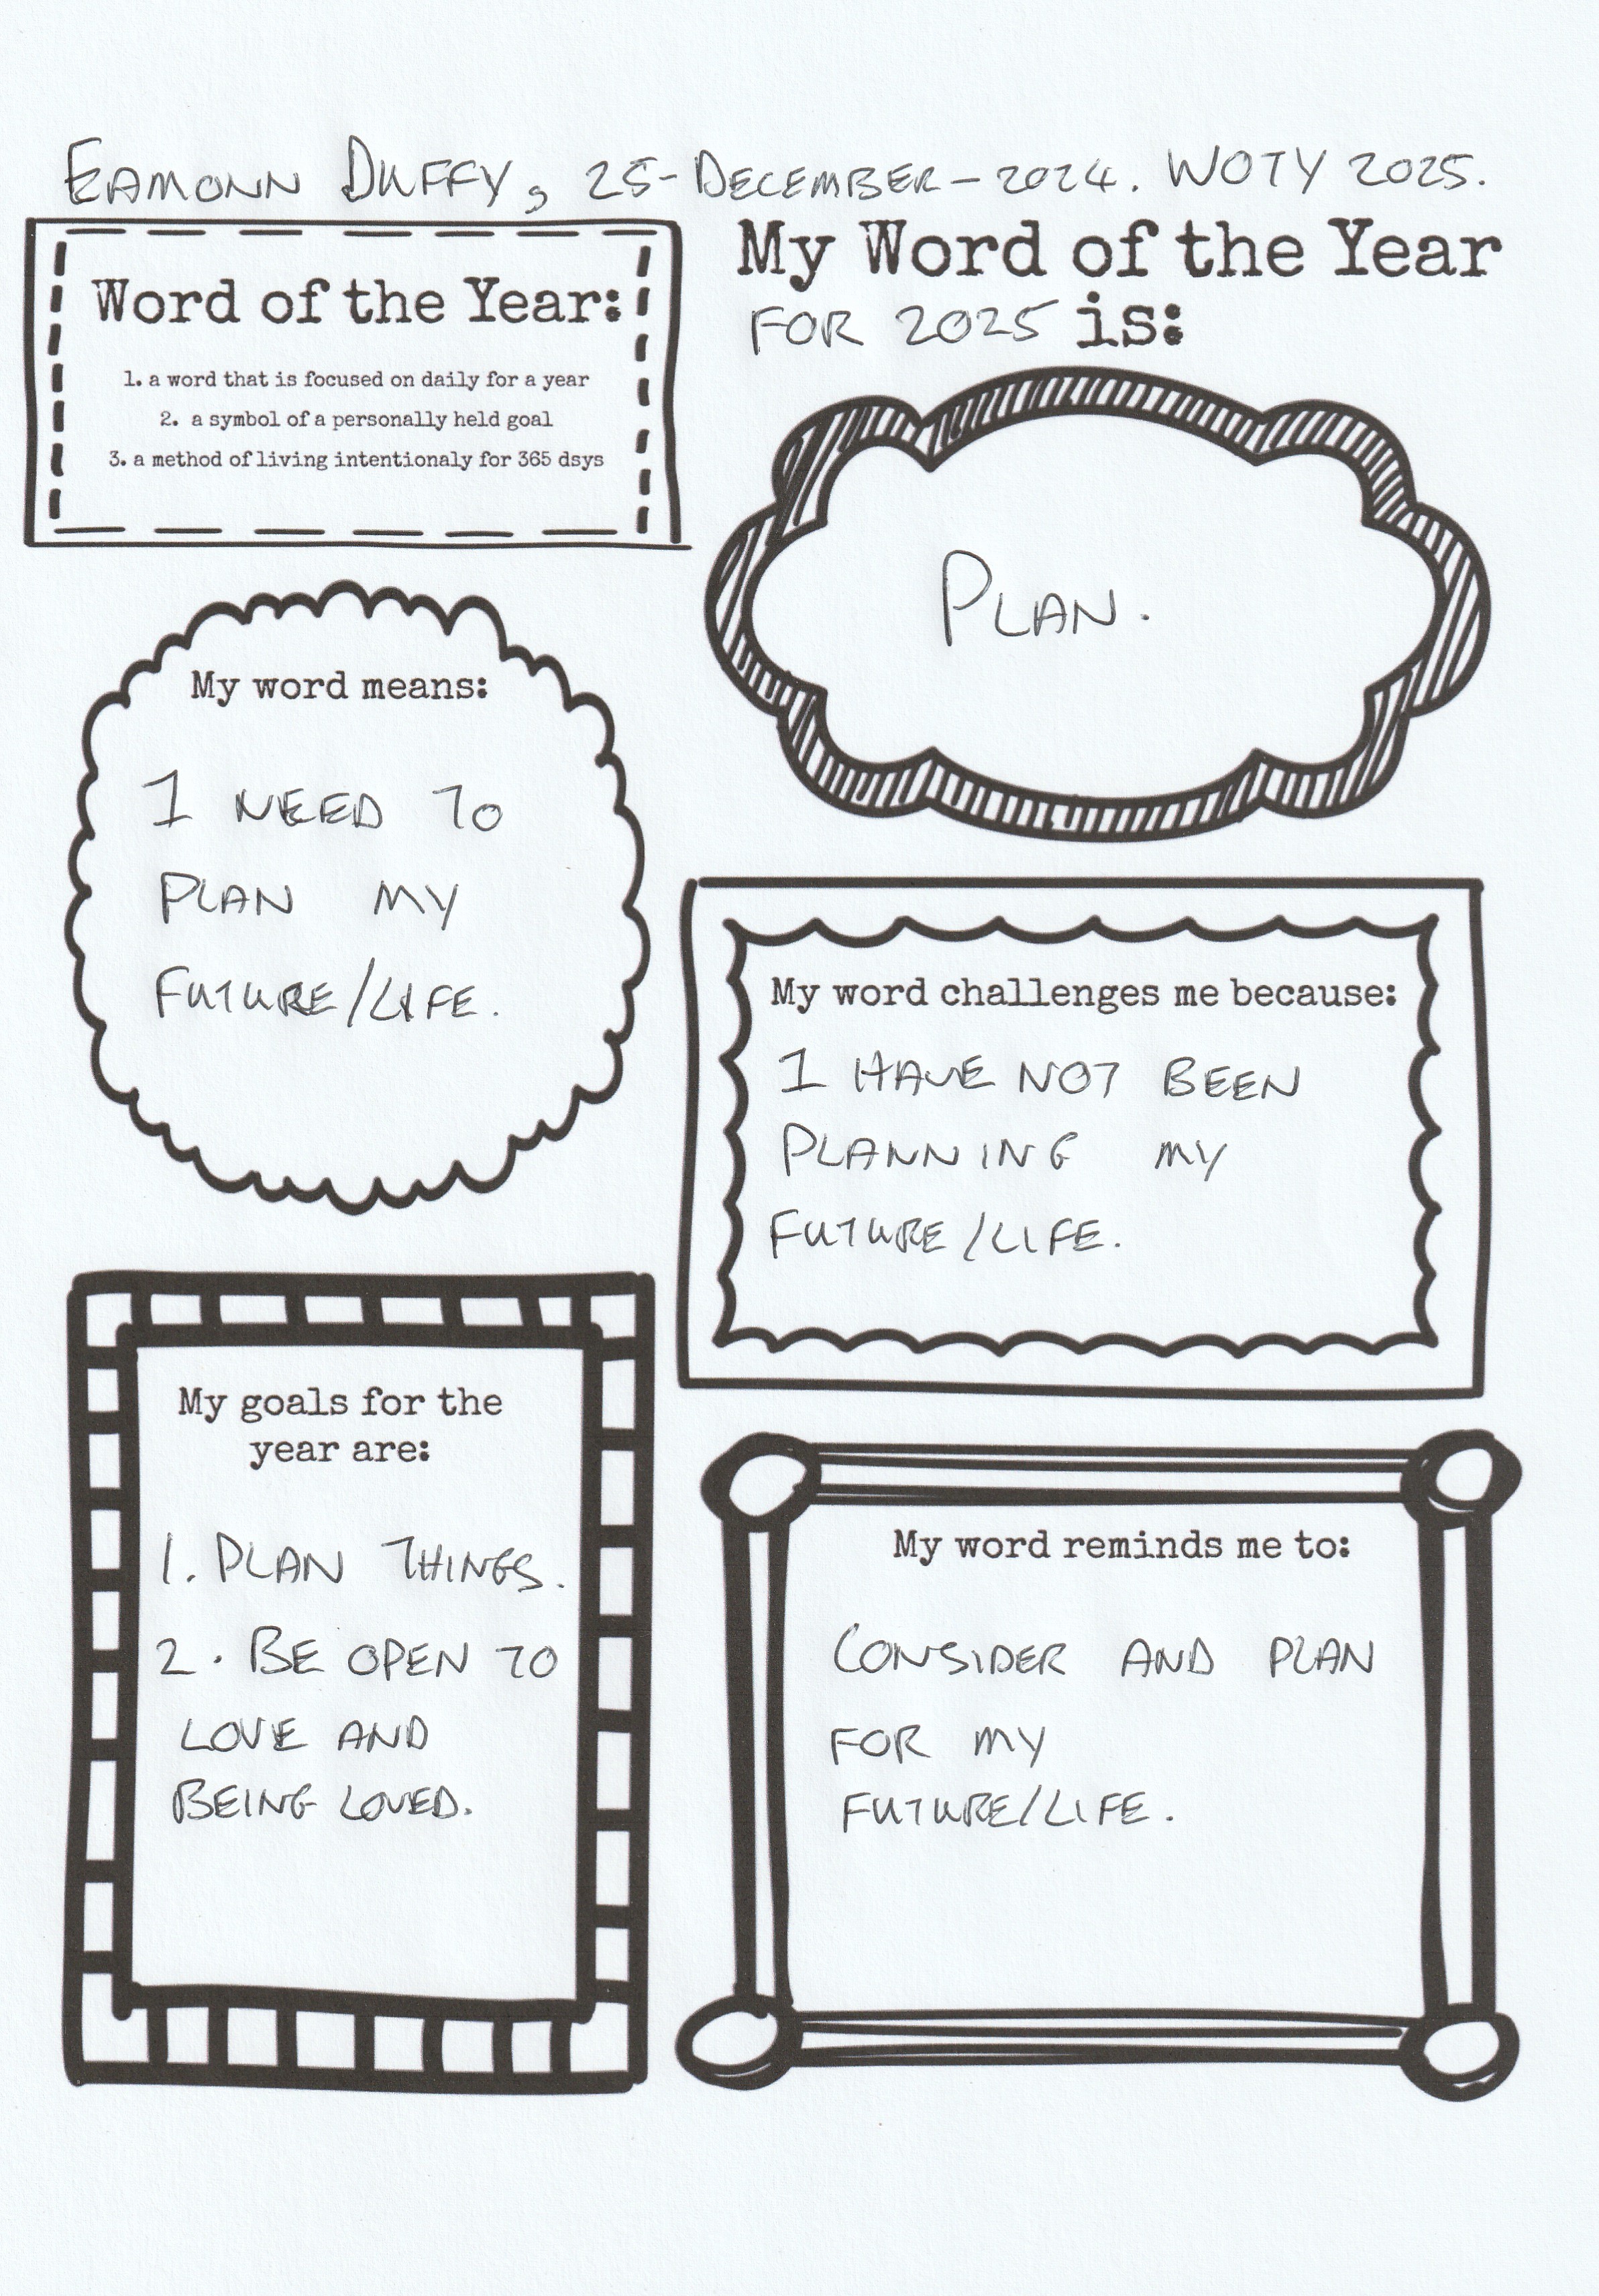 EAMONN DUFFY, 25-DECEMBER-2024. WOTY 2025.
Word of the Year:
1. a word that is focused on daily for a year
2. a symbol of a personally held goal
3. a method of living intentionaly for 365 dsys
My Word of the Year
FOR 2025 is:
PLAN.
My word means:
I NEED TO
PLAN MY
FUTURE/LIFE.
My word challenges me because:
I HAVE NOT BEEN
PLANNING MY
FUTURE/LIFE.
My goals for the
year are:
1. PLAN THINGS.
2. BE OPEN TO
LOVE AND
BEING LOVED.
My word reminds me to:
CONSIDER AND PLAN
FOR MY
FUTURE/LIFE.